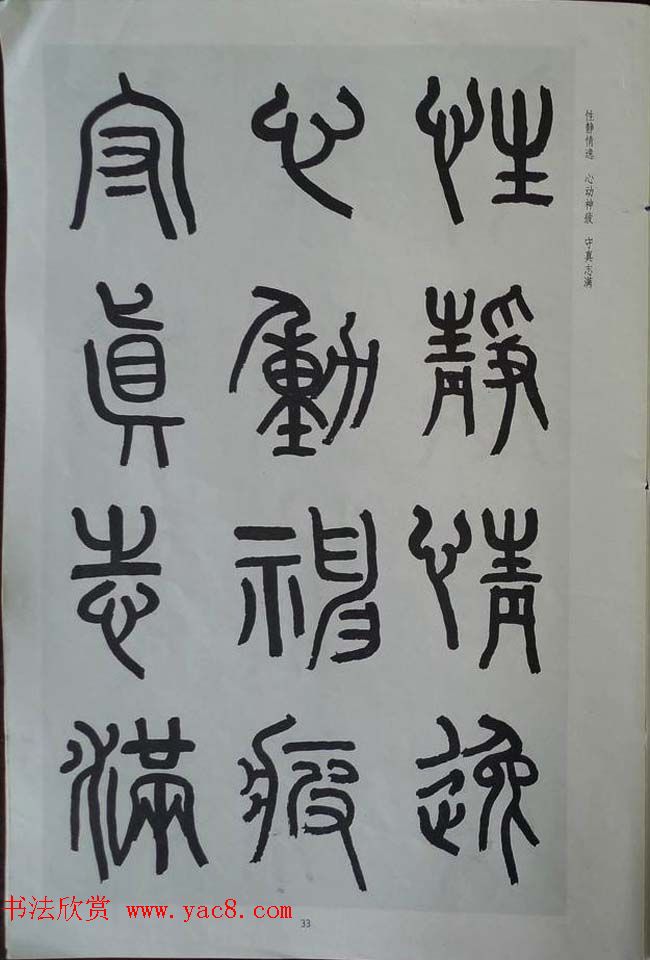 性靜情逸
心動神疲
守眞志滿
性静情逸 心动神疲 守真志满
书法欣赏 www.yac8.com
33